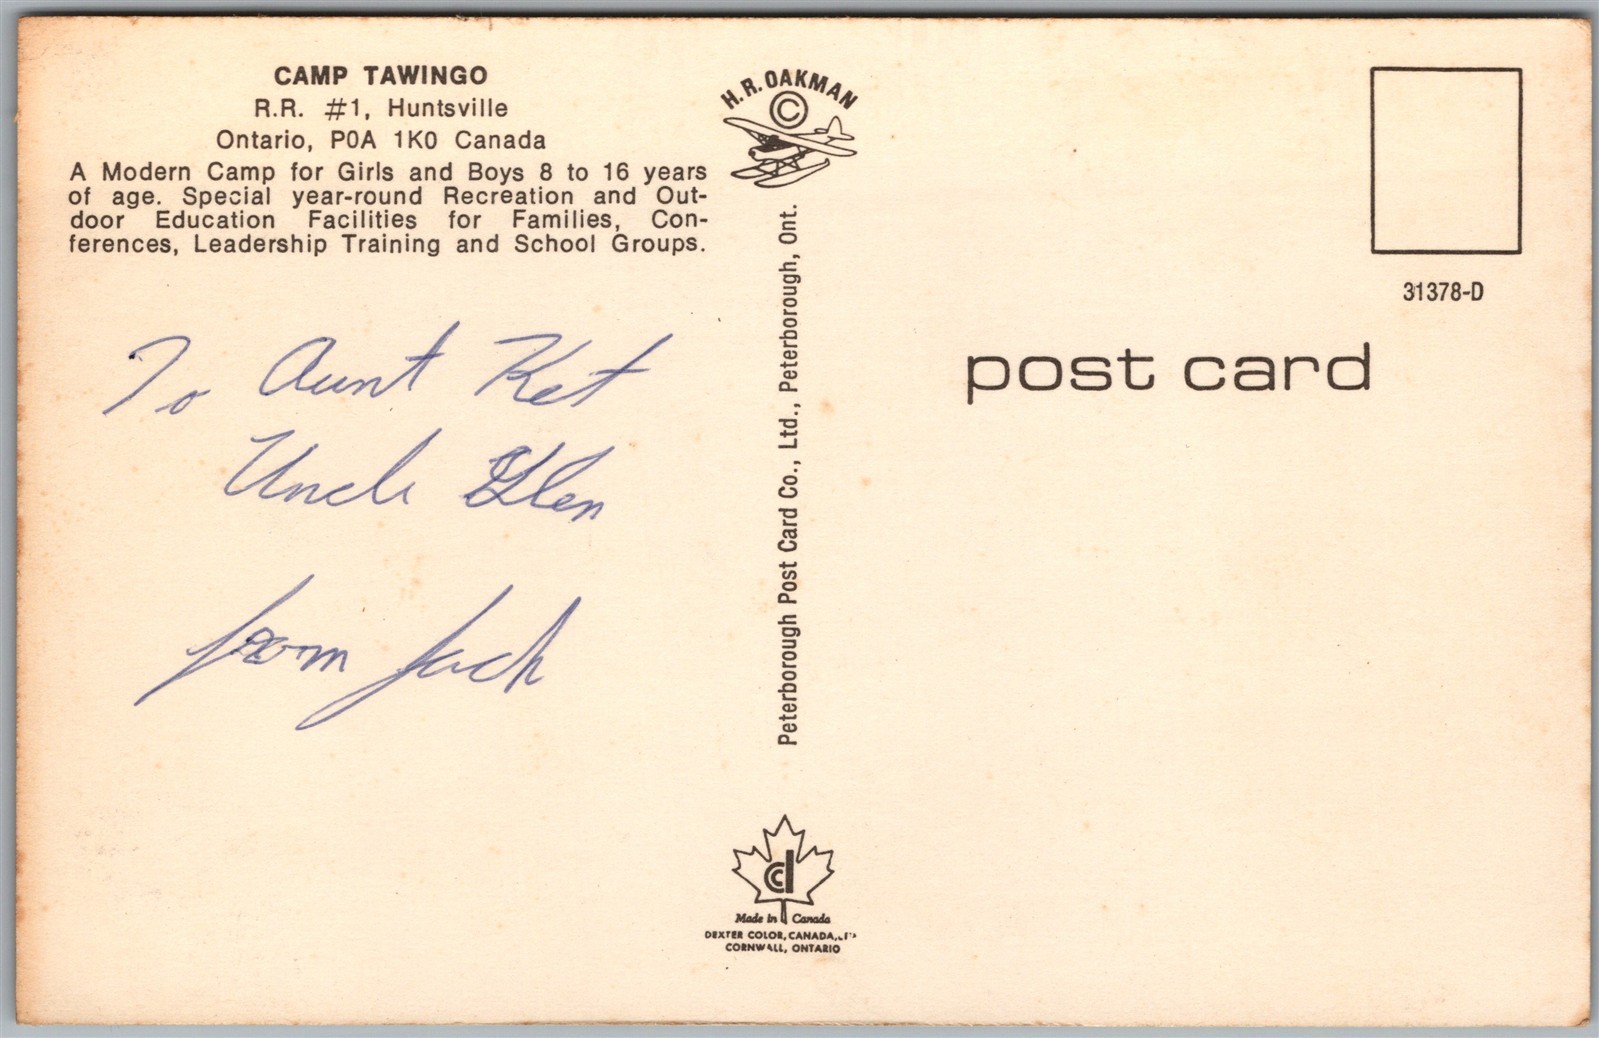 CAMP TAWINGO
R.R. #1, Huntsville
Ontario, P0A 1K0 Canada
A Modern Camp for Girls and Boys 8 to 16 years
of age. Special year-round Recreation and Out-
door Education Facilities for Families, Con-
ferences, Leadership Training and School Groups.
To Aunt Ket
Uncle Glen
from Jack
H. R. OAKMAN
©
Peterborough Post Card Co., Ltd., Peterborough, Ont.
cd
Made in Canada
DEXTER COLOR, CANADA,
CORNWALL, ONTARIO
31378-D
post card